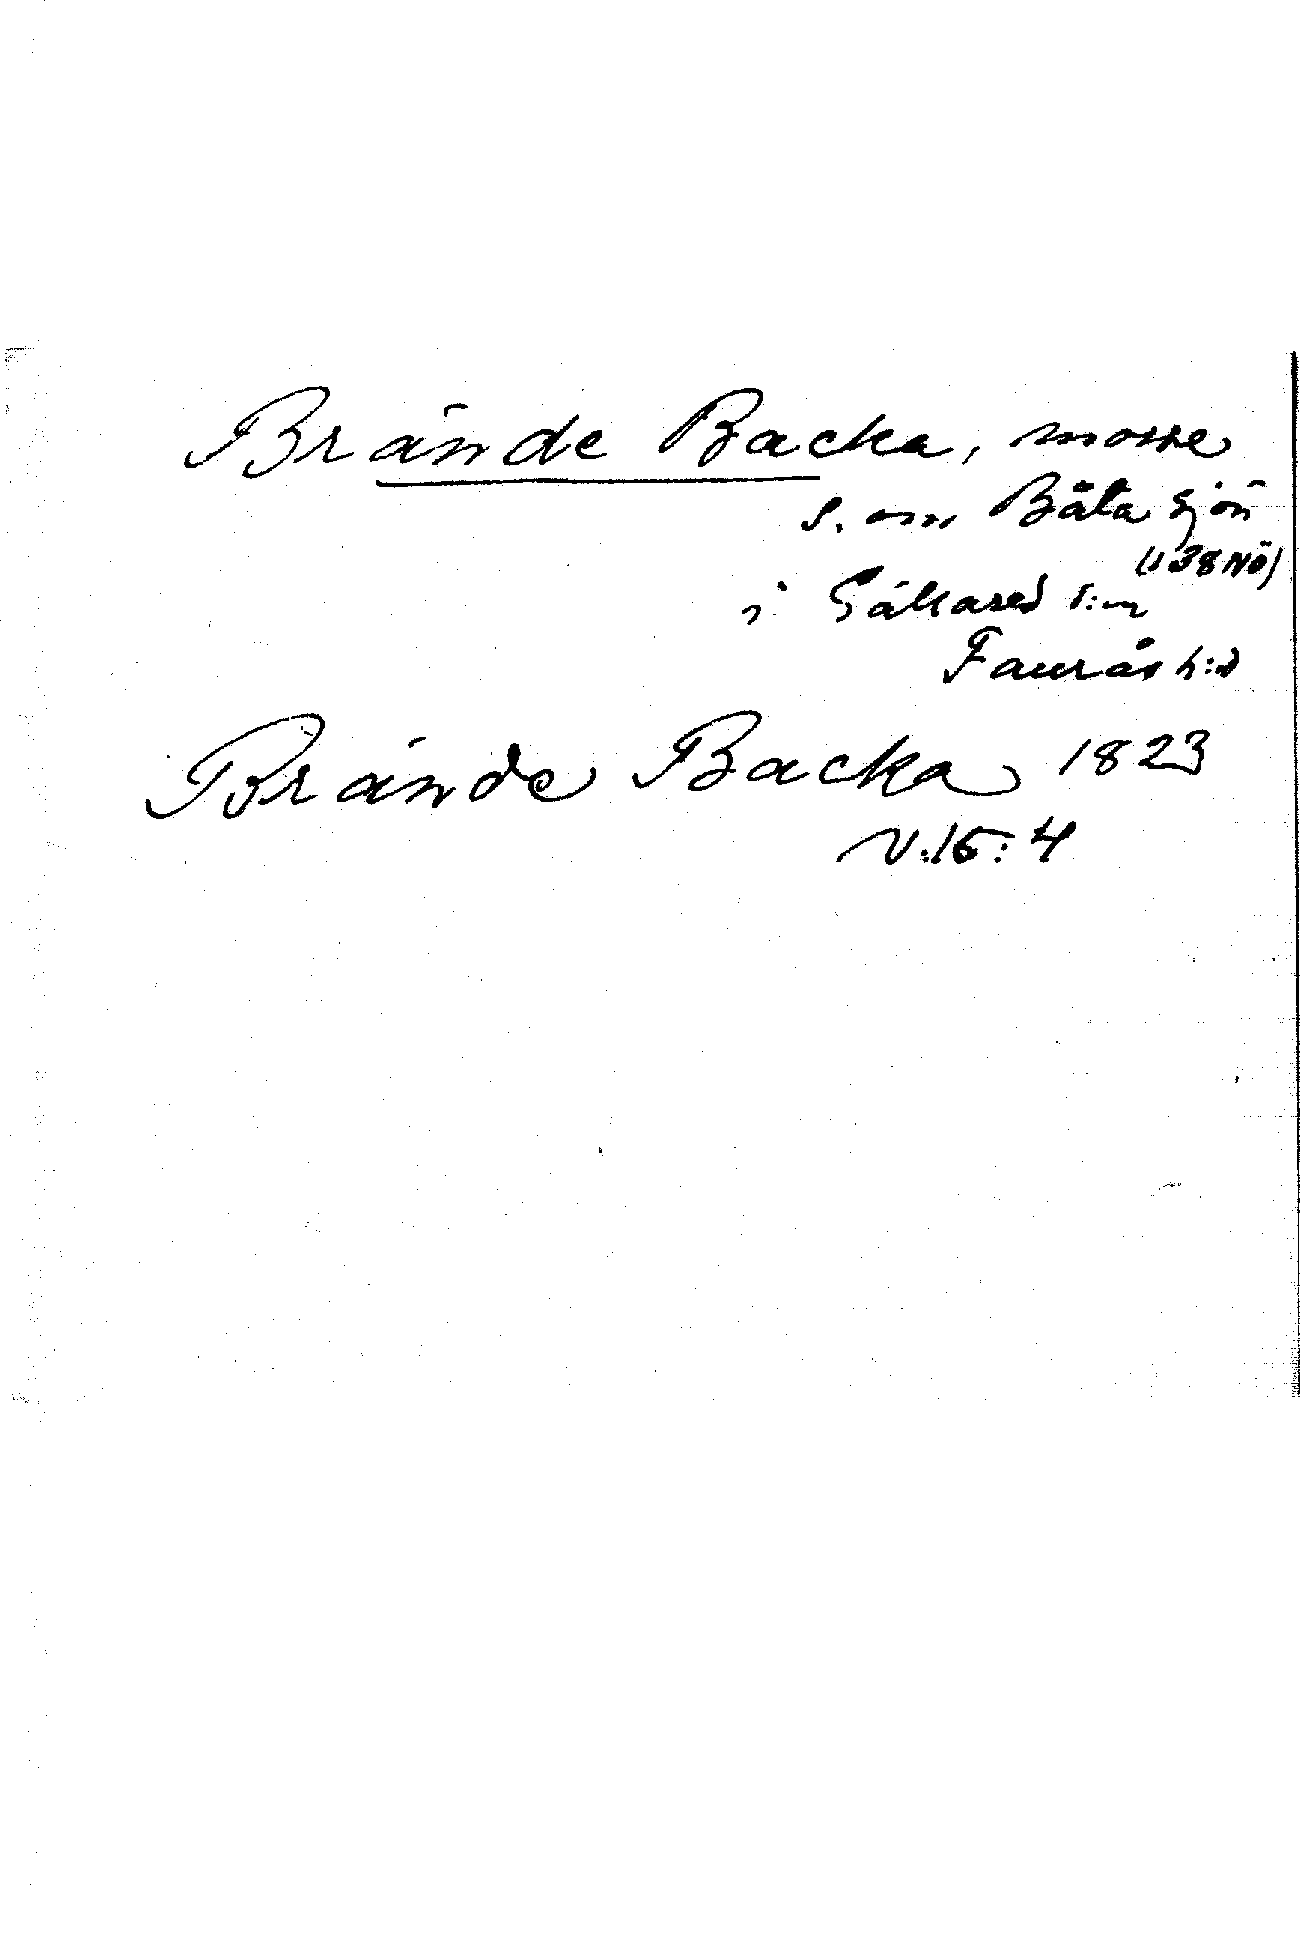 Brände Backa, mosse
S. om Bäta Sjön
(138 NÖ)
i Gällared s:n
Faurås h:d
Brände Backa 1823
V:15:4